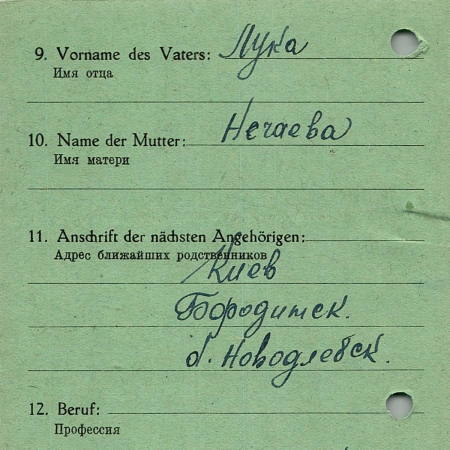 9. Vorname des Vaters: Лука
Имя отца
10. Name der Mutter: Нечаева
Имя матери
11. Anschrift der nächsten Angehörigen:
Адрес ближайших родственников
Киев
Бородитск.
д. Новодлебск.
12. Beruf:
Профессия